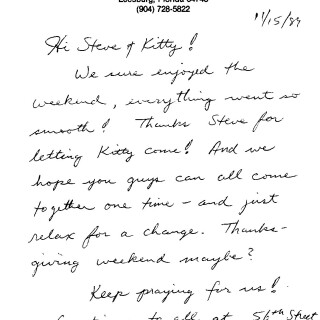 (904) 728-5822
11/15/89
Hi Steve & Kitty!
We sure enjoyed the
weekend, everything went so
smooth! Thanks Steve for
letting Kitty come! And we
hope you guys can all come
together one time - and just
relax for a change. Thanks-
giving weekend maybe?
Keep praying for us!
to all at 56th Street